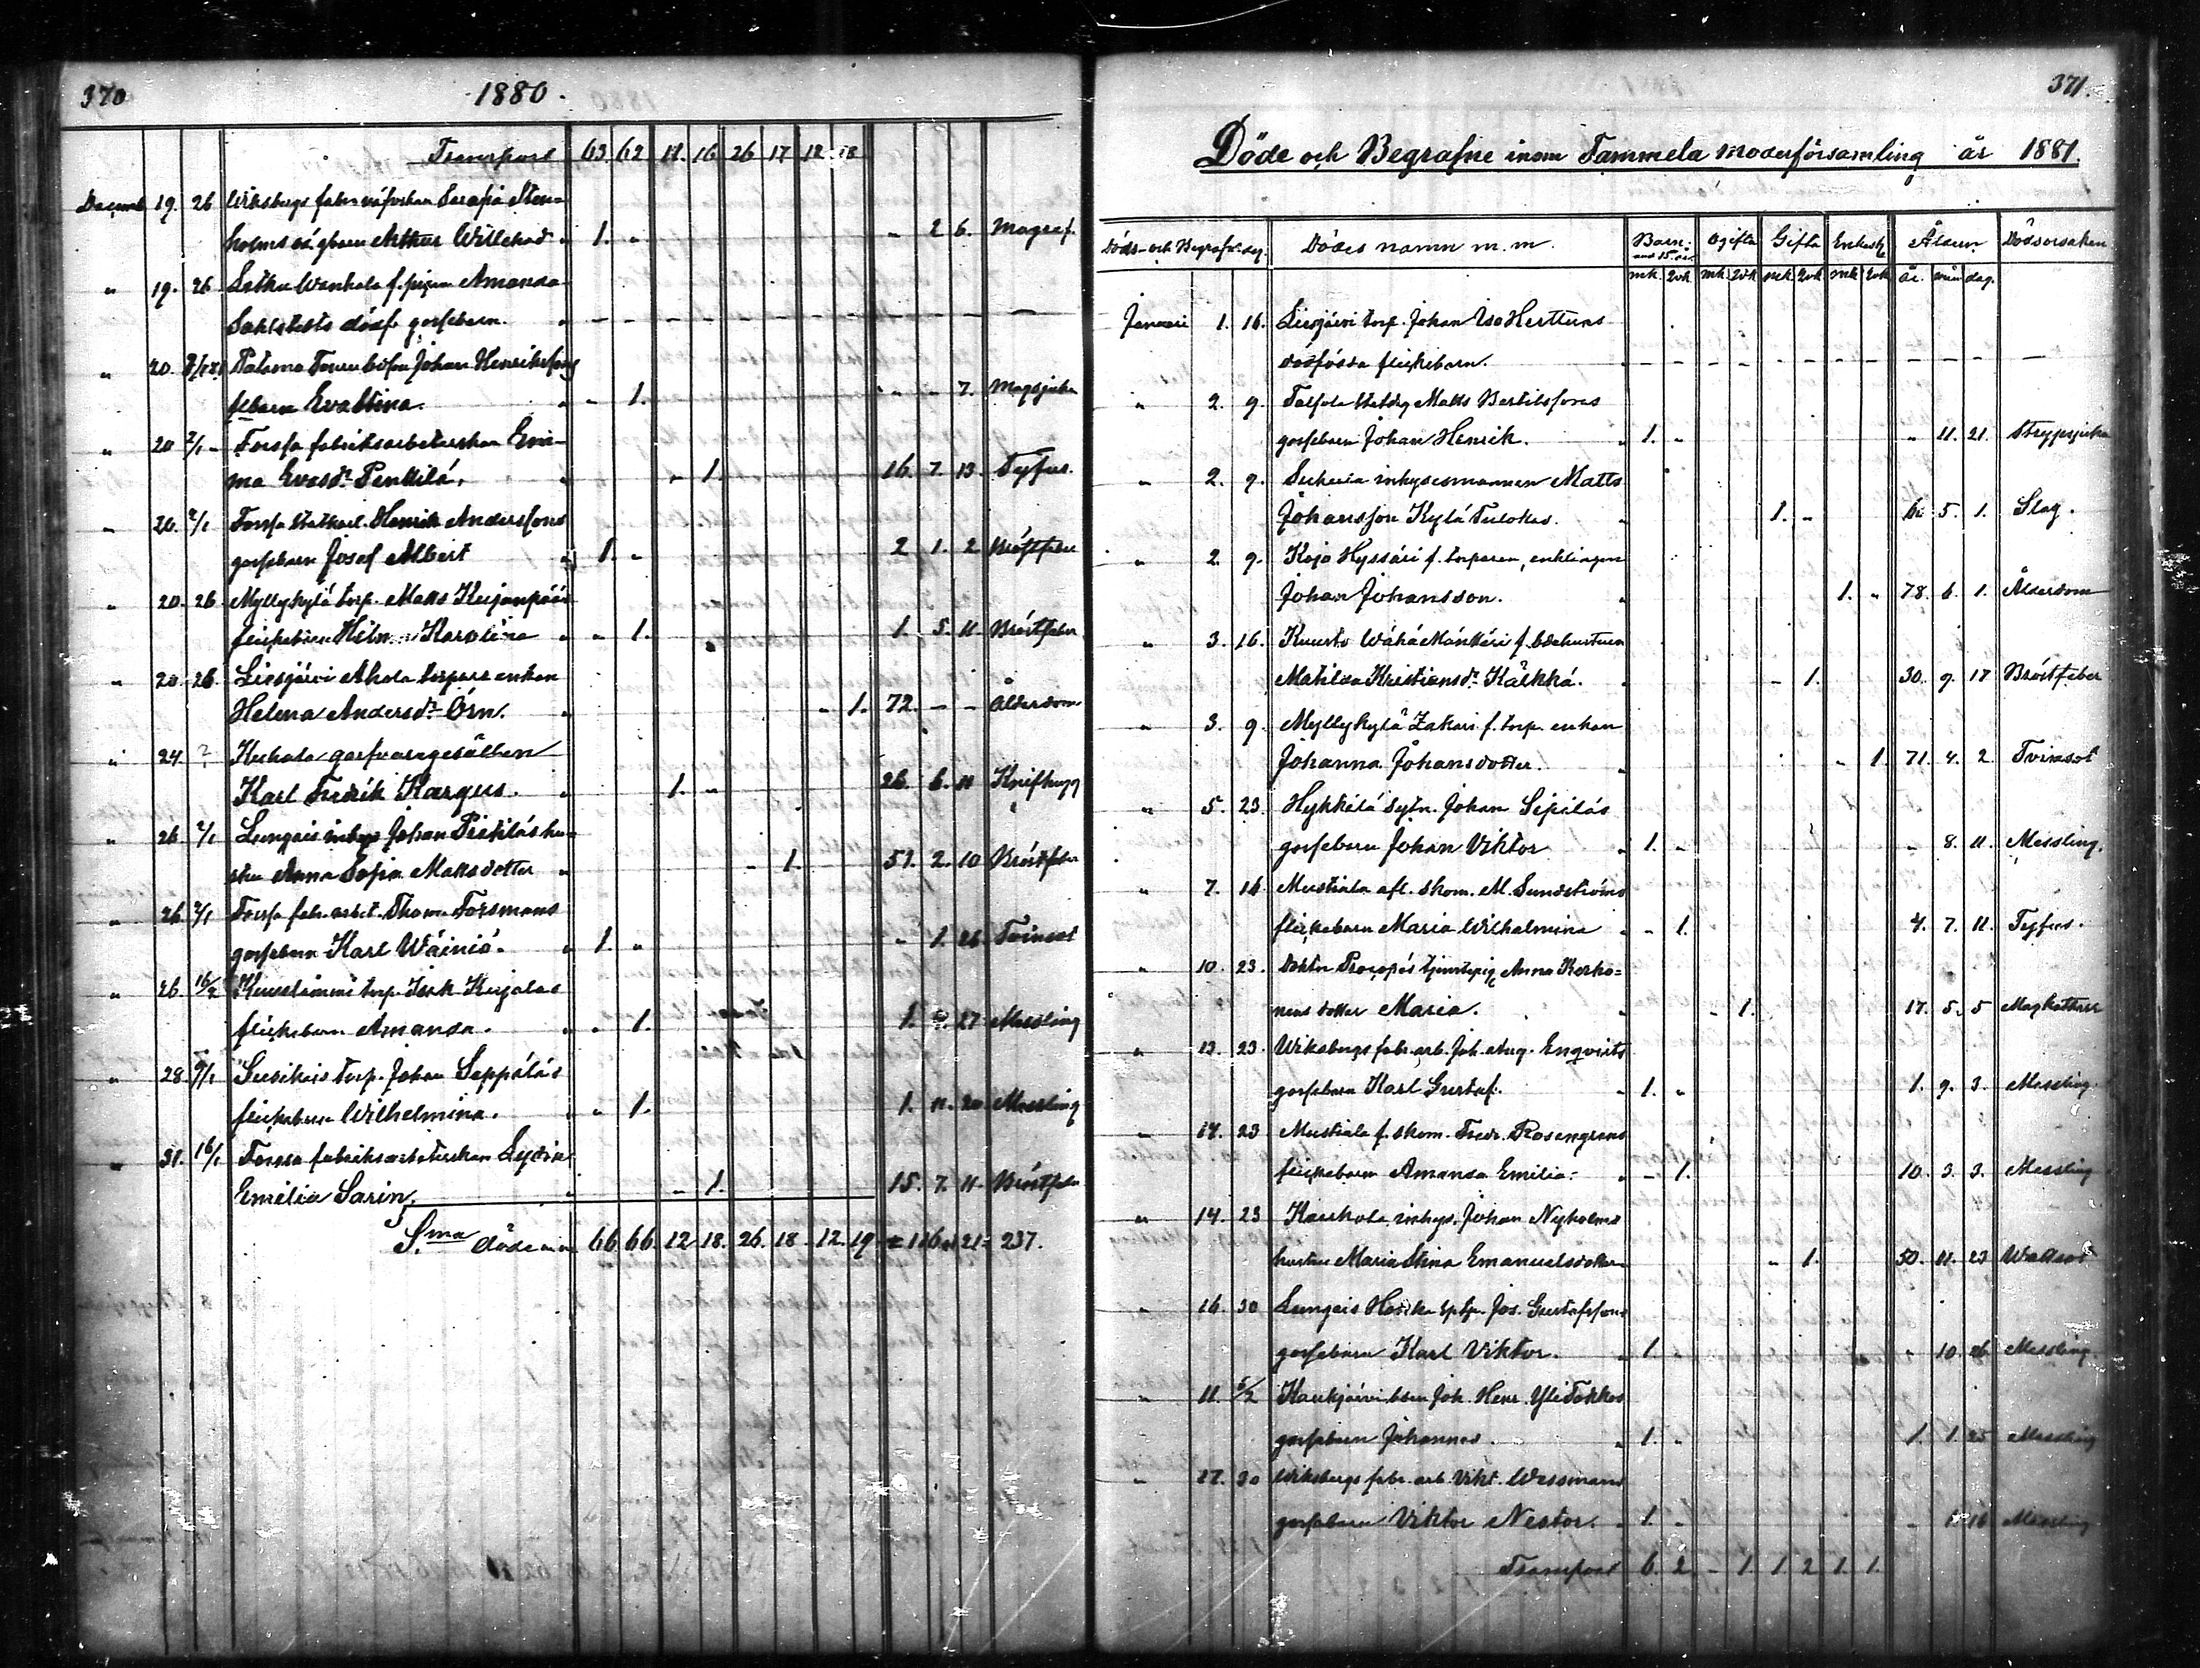 370
1880.
Transport 63 62 11. 16 26 17 12 18
Decemb 19. 26 Wiksbergs fabr.
holms oä gbarn Arthur Willehad " 1. " " 2 6. Magraf.
" 19. 26 Letku Wanhala f. pigan Amanda
Sahlstedts dödf. gossebarn. " – – – – – –
" 20. Patamo Torrn Johan Henrikssons
flbarn Eva Stina. " – 1. " – – 7. Magsjuka
" 20 2/1 – Forssa fabriksarbeterskan Em-
ma Evasdr Penttilä. " " 1. 16. 7. 13. Tyfus.
" 20. 2/1 Forssa statkarl. Henrik Anderssons
gossebarn Josef Albert " 1. " 2 1. 2 Bröstfeber
" 20. 26. Myllykylä torp. Matts Kujanpääs
flickebarn Karolina " " 1. 1. 5. 11. Bröstfeber
" 20. 26. Liesjärvi Ahola torpare enkan
Helena Andersdr Örn. " " 1. 72. – – Ålderdom
" 24. ? Kuhala garfvaregesällen
Karl Fredrik Kargus. " 1. " 26. 6. 11 Knifhugg
" 26 2/1 Lungois inhys Johan hu-
stru Anna Sofia Mattsdotter " " 1. 51. 2. 10 Bröstfeber
" 26. 2/1 Forssa fabr. arbet. Thom. Forsmans
gossebarn Karl Wäinö. " 1. " " 1. 26 Tvinsot
" 26. 16/2 Kuuslammi torp. Isak Kujalas
flickebarn Amanda. " " 1. 1. 27 Messling
" 28. 9/1 Susikais torp. Johan Seppäläs
flickebarn Wilhelmina. " " 1. 1. 11. 20 Messling
" 31. 16/1 Forssa fabriksarbeterskan Lydia
Emelia Sarin. " " 1. 15. 7. 11. Bröstfeber
Sma döde 66 66. 12 18. 26. 18 12. 19 = 116 121 = 237.
371.
Döde och Begrafne inom Tammela moderförsamling år 1881.
Döds- och Begrafn. dag. Dödes namn m. m. Barn: Ogifta Gifta Enkest. Åldern Dödsorsaken
und 15. år.
mk. qvk mk. qvk mk. qvk mk qvk år. mån dag.
Januari 1. 16. Liesjärvi torp. Johan Iso Herttuas
dödfödda flickebarn. – – – – – –
" 2. 9. Talpola Matts Bertilssons
gossebarn Johan Henrik. " 1. " " 11. 21. Strypsjuka
" 2. 9. Sukula inhysesmannen Matts
Johansson Kylä Tulokas. " 1. " 5. 1. Slag.
" 2. 9. Kojo Hyssäri f. torparen, enklingen
Johan Johansson. " 1. " 78. 6. 1. Ålderdom
" 3. 16. Kuusto Wähä Mänttäri f. bdehustrun
Matilda Kristiansdr Kälkkä. " – 1. 30. 9. 17 Bröstfeber
" 3. 9. Myllykylä Zakari f. torp. enkan
Johanna Johansdotter. " " 1. 71. 4. 2 Tvinsot
" 5. 23. Hykkilä sytn. Johan Sipiläs
gossebarn Johan Viktor " 1. " " 8. 11. Messling.
" 7. 16 Mustiala afl. skom. M. Sundströms
flickebarn Maria Wilhelmina " – 1. 4. 7. 11. Tyfus.
" 10. 23. Doktor Procopés tjenstepig. Anna Korho-
nens dotter Maria. " " 1. 17. 5. 5 Magkattarr
" 13. 23. Wiksbergs fabr. arb. Joh. Aug. Enqvists
gossebarn Karl Gustaf. " 1. " 1. 9. 3. Messling.
" 14. 23 Mustiala f. skom. Fredr. Rosengrens
flickebarn Amanda Emilia. " – 1. 10. 3. 3. Messling
" 14. 23 Kaukola inhys. Johan Nyholms
hustru Maria Stina Emanuelsdotter " 1. 50. 11. 23 Wattsot
" 16. 30 Lungois Jos. Gustafssons
gossebarn Karl Viktor. " 1. " " 10. 26 Messling
" 11. 6/2 Kaukjärvi bden Joh. Henr. Yli Tokkos
gossebarn Johannes. " 1. " 1. 1. 25 Messling
" 17. 30 Wiksbergs fabr. arb. Vikt. Wessmans
gossebarn Viktor Nestor. " 1. " " 1. 16 Messling
Transport 6. 2. – 1. 1. 2 1. 1.